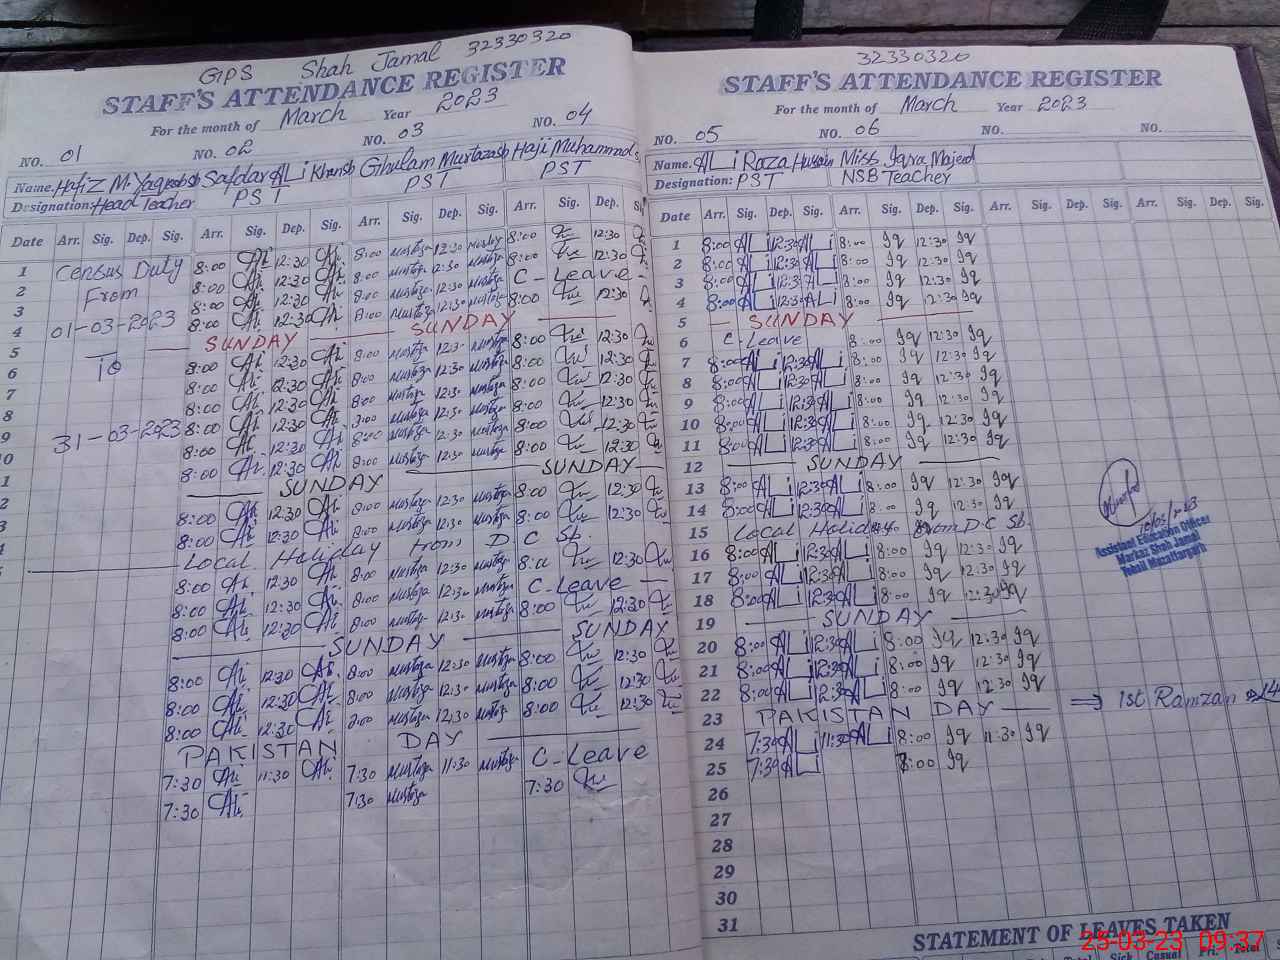 GPS Shah Jamal 32330320
STAFF'S ATTENDANCE REGISTER
For the month of March Year 2023
NO. 01 NO. 02 NO. 03 NO. 04
Name. Hafiz M. Yaqoob Safdar Ali Khan Ghulam Murtaza Haji Muhammad
Designation: Head Teacher PST PST PST
Date Arr. Sig. Dep. Sig. Arr. Sig. Dep. Sig. Arr. Sig. Dep. Sig. Arr. Sig. Dep. Sig.
1 Census Duty 8:00 12:30 8:00 12:30 8:00 12:30
2 From 8:00 12:30 8:00 12:30 8:00 12:30
3 8:00 12:30 8:00 12:30 C-Leave
4 01-03-2023 8:00 12:30 8:00 12:30 8:00 12:30
5 SUNDAY SUNDAY
6 to 8:00 12:30 8:00 12:30 8:00 12:30
7 8:00 12:30 8:00 12:30 8:00 12:30
8 8:00 12:30 8:00 12:30 8:00 12:30
9 31-03-2023 8:00 12:30 8:00 12:30 8:00 12:30
10 8:00 12:30 8:00 12:30 8:00 12:30
8:00 12:30 8:00 12:30 8:00 12:30
SUNDAY SUNDAY
8:00 12:30 8:00 12:30 8:00 12:30
8:00 12:30 8:00 12:30 8:00 12:30
Local Holiday From D C Sb.
8:00 12:30 8:00 12:30 8:00 12:30
8:00 12:30 8:00 12:30 C-Leave
8:00 12:30 8:00 12:30 8:00 12:30
SUNDAY SUNDAY
8:00 12:30 8:00 12:30 8:00 12:30
8:00 12:30 8:00 12:30 8:00 12:30
8:00 12:30 8:00 12:30 8:00 12:30
PAKISTAN DAY
7:30 11:30 7:30 11:30 C-Leave
7:30 7:30 7:30
32330320
STAFF'S ATTENDANCE REGISTER
For the month of March Year 2023
NO. 05 NO. 06 NO. NO.
Name. ALi Raza Hussain Miss Iqra Majeed
Designation: PST NSB Teacher
Date Arr. Sig. Dep. Sig. Arr. Sig. Dep. Sig. Arr. Sig. Dep. Sig. Arr. Sig. Dep. Sig.
1 8:00 ALi 12:30 ALi 8:00 Iq 12:30 Iq
2 8:00 ALi 12:30 ALi 8:00 Iq 12:30 Iq
3 8:00 ALi 12:30 ALi 8:00 Iq 12:30 Iq
4 8:00 ALi 12:30 ALi 8:00 Iq 12:30 Iq
5 SUNDAY
6 C-Leave 8:00 Iq 12:30 Iq
7 8:00 ALi 12:30 ALi 8:00 Iq 12:30 Iq
8 8:00 ALi 12:30 ALi 8:00 Iq 12:30 Iq
9 8:00 ALi 12:30 ALi 8:00 Iq 12:30 Iq
10 8:00 ALi 12:30 ALi 8:00 Iq 12:30 Iq
11 8:00 ALi 12:30 ALi 8:00 Iq 12:30 Iq
12 SUNDAY
13 8:00 ALi 12:30 ALi 8:00 Iq 12:30 Iq
14 8:00 ALi 12:30 ALi 8:00 Iq 12:30 Iq
15 Local Holiday From D C Sb.
16 8:00 ALi 12:30 ALi 8:00 Iq 12:30 Iq
17 8:00 ALi 12:30 ALi 8:00 Iq 12:30 Iq
18 8:00 ALi 12:30 ALi 8:00 Iq 12:30 Iq
19 SUNDAY
20 8:00 ALi 12:30 ALi 8:00 Iq 12:30 Iq
21 8:00 ALi 12:30 ALi 8:00 Iq 12:30 Iq
22 8:00 ALi 12:30 ALi 8:00 Iq 12:30 Iq
23 PAKISTAN DAY ⇒ 1st Ramzan
24 7:30 ALi 11:30 ALi 8:00 Iq 11:30 Iq
25 7:30 ALi 8:00 Iq
26
27
28
29
30
31
Assistant Education Officer
Markaz Shah Jamal
Tehsil Muzaffargarh
STATEMENT OF LEAVES TAKEN
Total Sick Casual Pri. Total
25-03-23 09:37